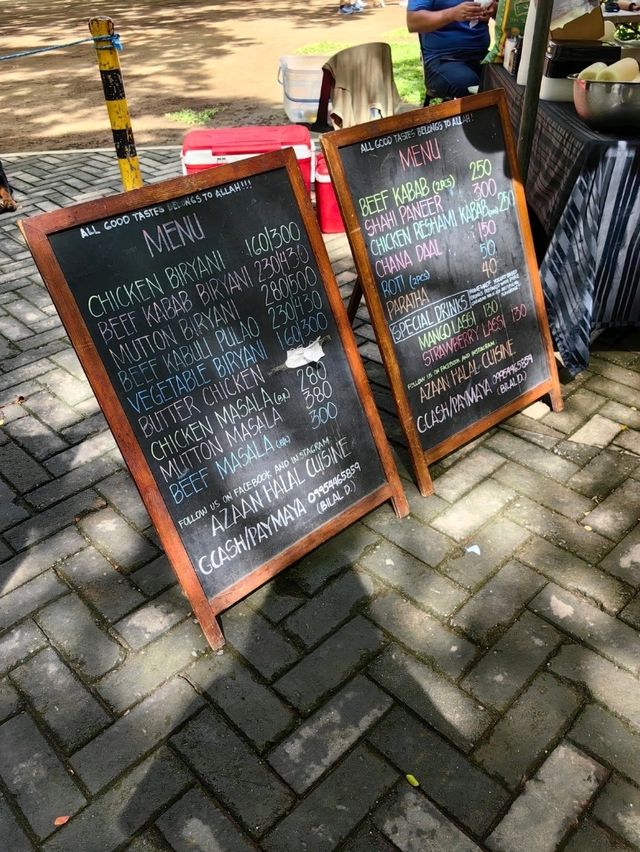 ALL GOOD TASTES BELONGS TO ALLAH!!!
MENU
CHICKEN BIRYANI 160/300
BEEF KABAB BIRYANI 230/430
MUTTON BIRYANI 280/500
BEEF KABULI PULAO 230/430
VEGETABLE BIRYANI 160/300
BUTTER CHICKEN
CHICKEN MASALA (BN) 280
MUTTON MASALA 380
BEEF MASALA (BN) 300
FOLLOW US ON FACEBOOK AND INSTAGRAM
AZAAN HALAL CUISINE
GCASH/PAYMAYA 09954965859
(BILAL D.)
ALL GOOD TASTES BELONGS TO ALLAH!
MENU
BEEF KABAB (2PCS) 250
SHAHI PANEER 300
CHICKEN RESHAMI KABAB 250
CHANA DAAL 150
ROTI (2PCS) 50
PARATHA 40
SPECIAL DRINKS
MANGO LASSI 130
STRAWBERRY LASSI 130
FOLLOW US ON FACEBOOK AND INSTAGRAM
AZAAN HALAL CUISINE
GCASH/PAYMAYA 09954965859
(BILAL D.)